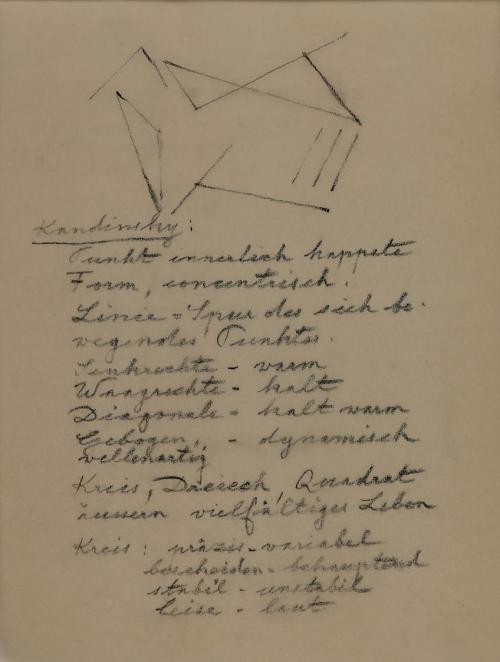 Kandinsky:
Punkt innerlich kappste
Form, concentrisch.
Linie = Spur des sich be-
wegendes Punktes.
Senkrechte - warm
Waagrechte - kalt
Diagonale = kalt warm
Gebogen, - dynamisch
wellenartig
Kreis, Dreieck, Quadrat
äussern vielfältiges Leben
Kreis : präzis - variabel
bescheiden - behauptend
stabil - unstabil
leise - laut